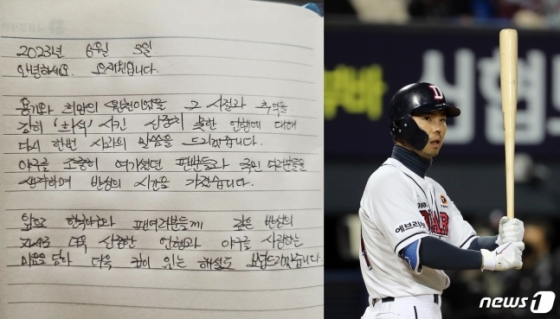 2023년 6월 5일
안녕하세요. 오재원입니다.
용기와 희망의 원천이었을 그 시절과 추억을
감히 '회석' 시킨 신중치 못한 언행에 대해
다시 한번 사과의 말씀을 드리겠습니다.
야구를 소중히 여기셨던 팬분들과 국민 여러분들을
생각하며 반성의 시간을 가졌습니다.
앞으로 한국야구와 팬여러분들께 깊은 반성의
자세로 더욱 신중한 언행과 야구를 사랑하는
마음을 담아 더욱 깊이 있는 해설로 보답드리겠습니다.
바 신협
D
에브리
news1